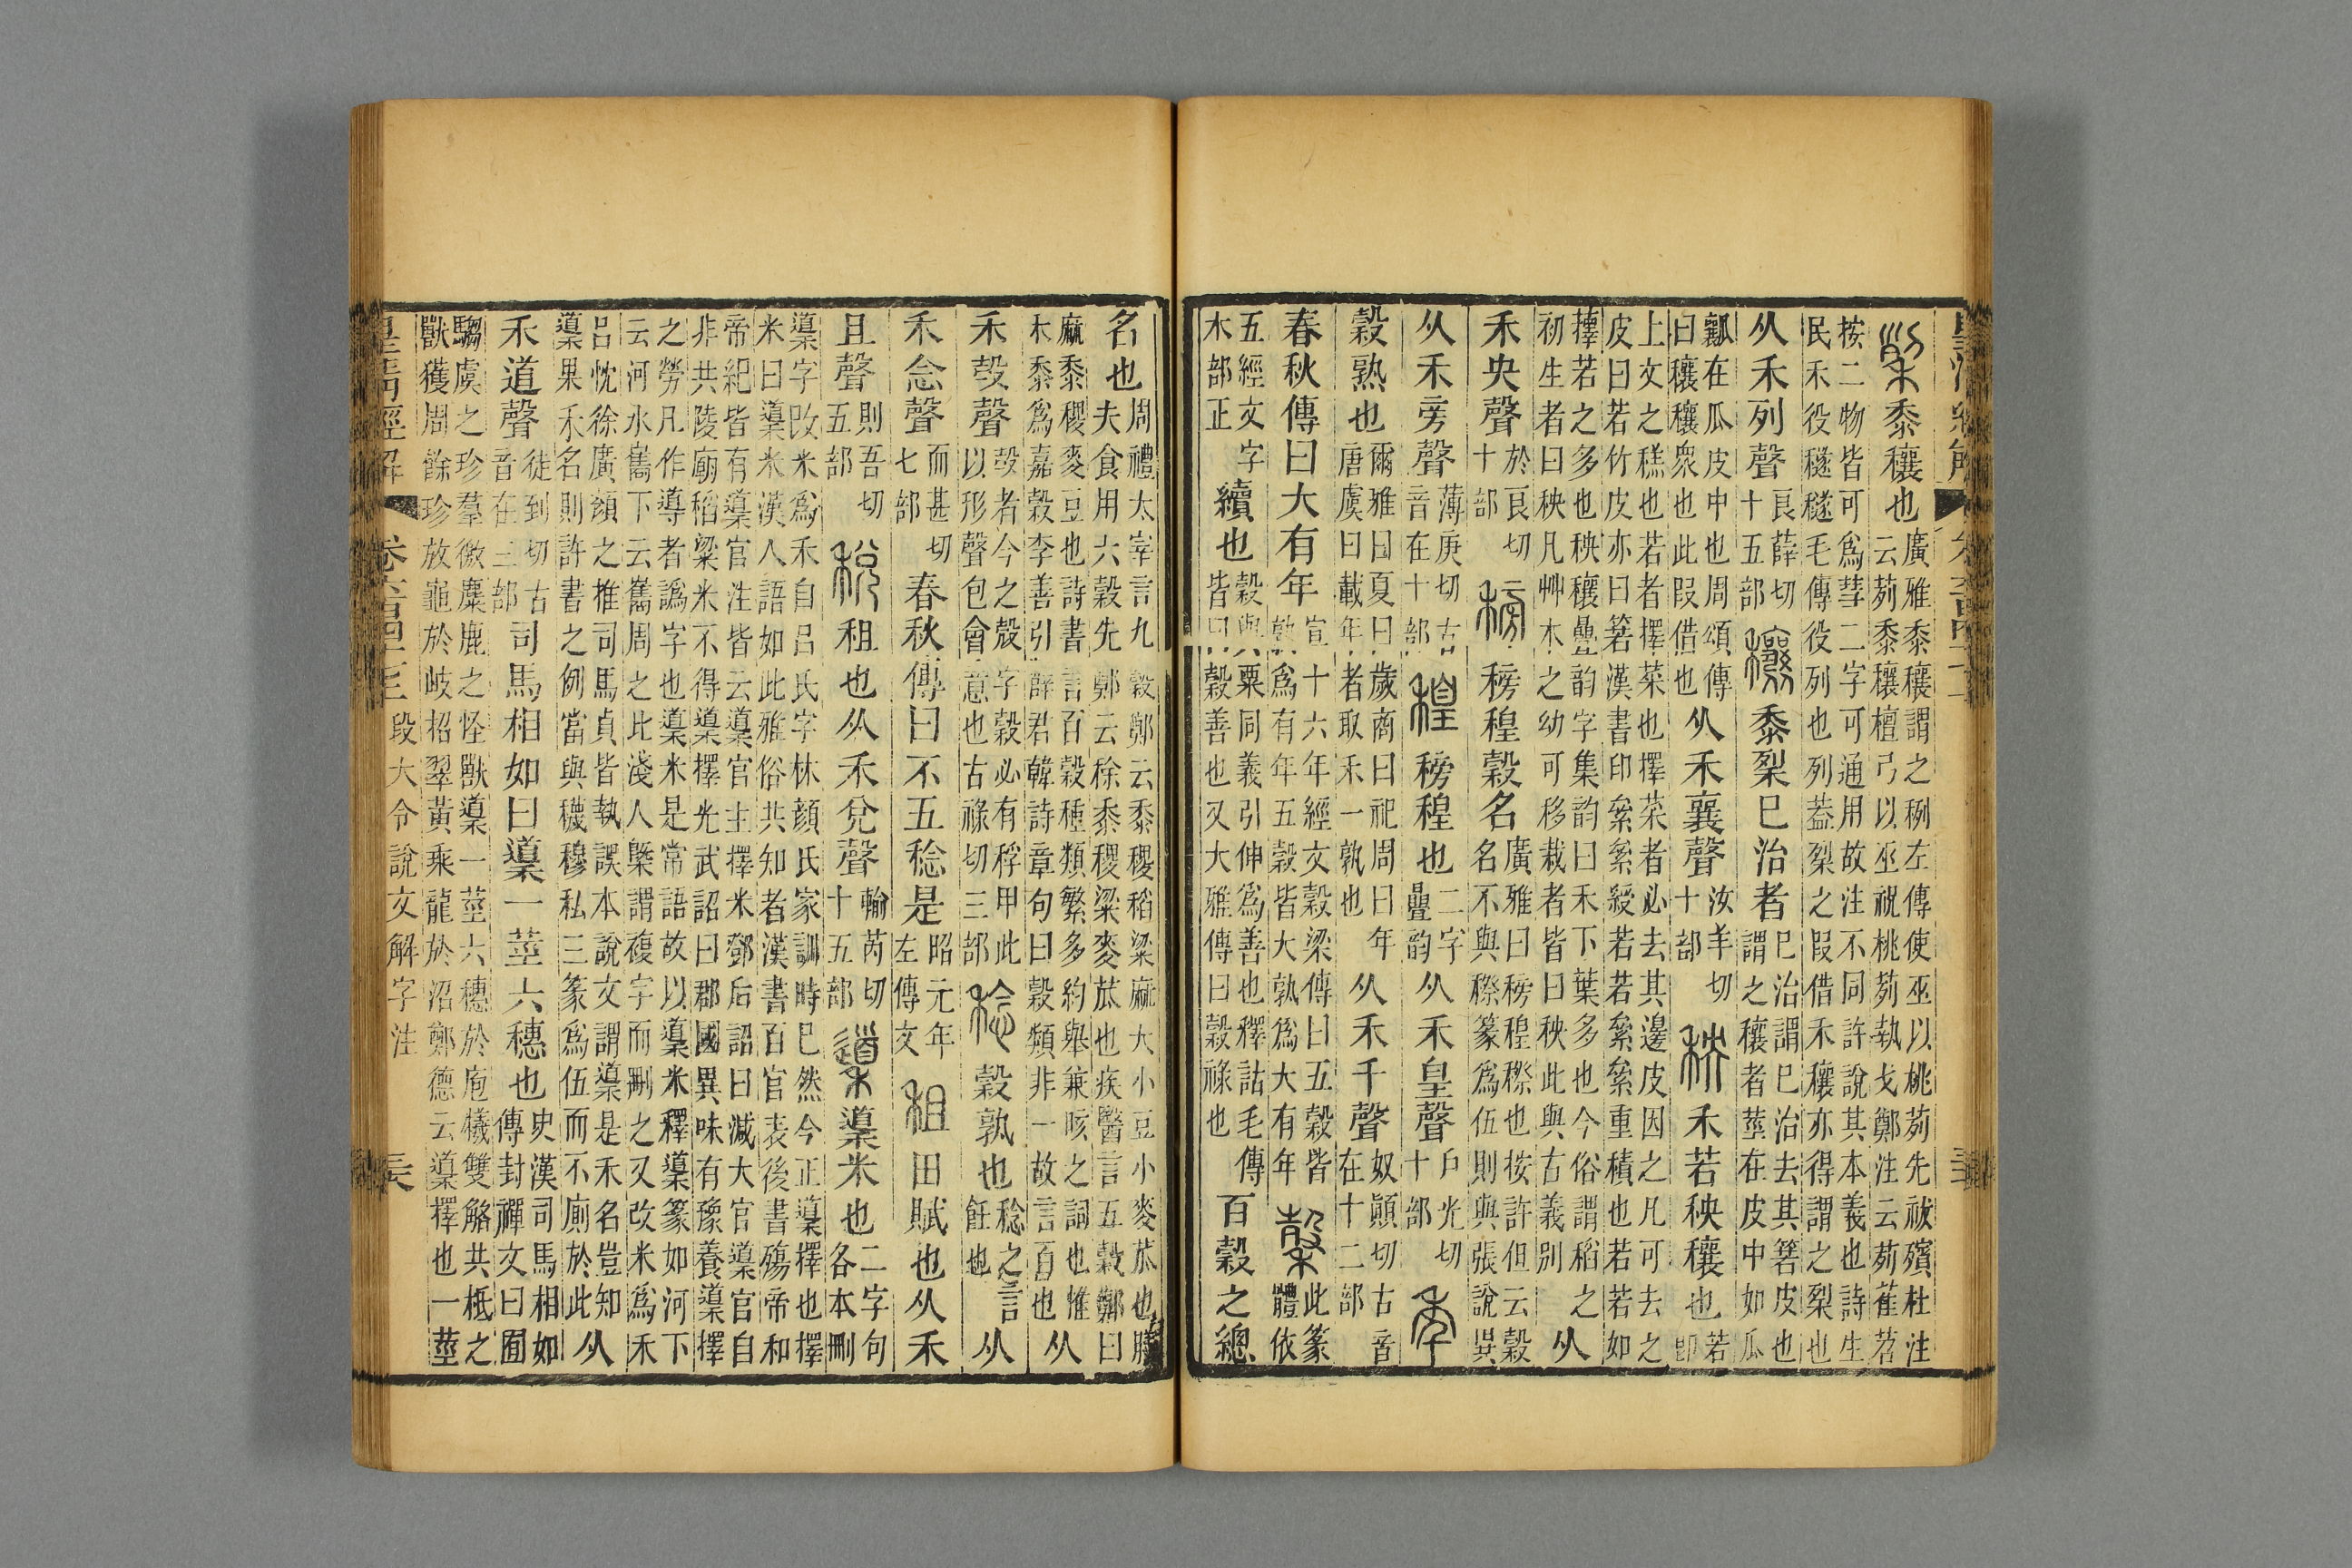 黍穰也
廣雅黍穰謂之䅀左傳使巫以桃茢先祓殯杜注
云茢黍穰檀弓以巫祝桃茢執戈鄭注云茢萑苕
按二物皆可爲彗二字可通用故注不同許說其本義也詩生
民禾役穟穟毛傳役列也列葢梨之叚借禾穰亦得謂之梨也
从禾列聲
良薛切
十五部
穰 黍梨已治者
已治謂已治去其箬皮也
謂之穰者莖在皮中如瓜
瓤在瓜皮中也周頌傳
曰穰穰衆也此叚借也
从禾襄聲
汝羊切
十部
秧 禾若秧穰也
若
卽
上文之䅖也若者擇菜也擇菜者必去其邊皮因之凡可去之
皮曰若竹皮亦曰箬漢書印絫絫綬若若絫絫重積也若若如
擇若之多也秧穰疊韵字集韵曰禾下葉多也今俗謂稻之
初生者曰秧凡艸木之幼可移栽者皆曰秧此與古義別
从
禾央聲
於良切
十部
䅭 䅭䅣穀名
廣雅曰䅭䅣穄也按許但云穀
名不與穄篆爲伍則與張說異
从禾旁聲
薄庚切古
音在十部
䅣 䅭䅣也
二字
疊韵
从禾皇聲
戶光切
十部
秊
穀熟也
爾雅曰夏曰歲商曰祀周曰年
唐虞曰載年者取禾一孰也
从禾千聲
奴顚切古音
在十二部
春秋傳曰大有年
宣十六年經文穀梁傳曰五穀皆
孰爲有年五穀皆大孰爲大有年
穀
此篆
體依
五經文字
木部正
續也
穀與粟同義引伸爲善也釋詁毛傳
皆曰穀善也又大雅傳曰穀祿也
百穀之總
名也
周禮太宰言九穀鄭云黍稷稻粱麻大小豆小麥苽也膳
夫食用六穀先鄭云稌黍稷粱麥苽也疾醫言五穀鄭曰
麻黍稷麥豆也詩書言百穀種類繁多約舉兼晐之詞也惟
木黍爲嘉穀李善引薛君韓詩章句曰穀類非一故言百也
从
禾㱿聲
㱿者今之殼字穀必有稃甲此
以形聲包會意也古祿切三部
稔 穀孰也
稔之言
飪也
从
禾念聲
而甚切
七部
春秋傳曰不五稔是
昭元年
左傳文
租 田賦也从禾
且聲
則吾切
五部
稅 租也从禾兌聲
輸芮切
十五部
䆃 䆃米也
二字句
各本刪
䆃字改米爲禾自呂氏字林顏氏家訓時已然今正䆃擇也擇
米曰䆃米漢人語如此雅俗共知者漢書百官表後書殤帝和
帝紀皆有䆃官注皆云䆃官主擇米鄧后詔曰減大官䆃官自
非共陵廟稻粱米不得䆃擇光武詔曰郡國異味有豫養䆃擇
之勞凡作導者譌字也䆃米是常語故以䆃米釋䆃篆如河下
云河水巂下云巂周之比淺人槩謂複字而刪之又改米爲禾
呂忱徐廣顏之推司馬貞皆執誤本說文謂䆃是禾名豈知
䆃果禾名則許書之例當與穖穆私三篆爲伍而不廁於此
从
禾道聲
徒到切古
音在三部
司馬相如曰䆃一莖六穗也
史漢司馬相如
傳封禪文曰囿
騶虞之珍羣徼麋鹿之怪獸䆃一莖六穗於庖犧雙觡共柢之
獸獲周餘珍放龜於岐招翠黃乘龍於沼鄭德云䆃擇也一莖
皇淸經解 段大令說文解字注